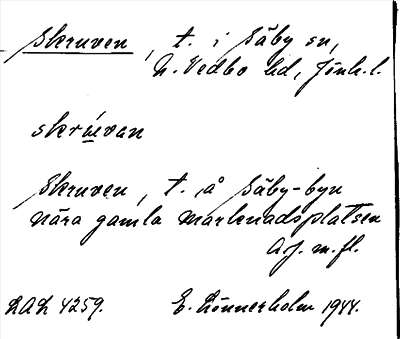 Skruven, t. i Säby sn,
N. Vedbo hd, Jönk. l.
skrúvan
Skruven, t. å Säby-byn
nära gamla marknadsplatsen
A.J. m. fl.
LAL 4259. E. Lönnerholm 1944.